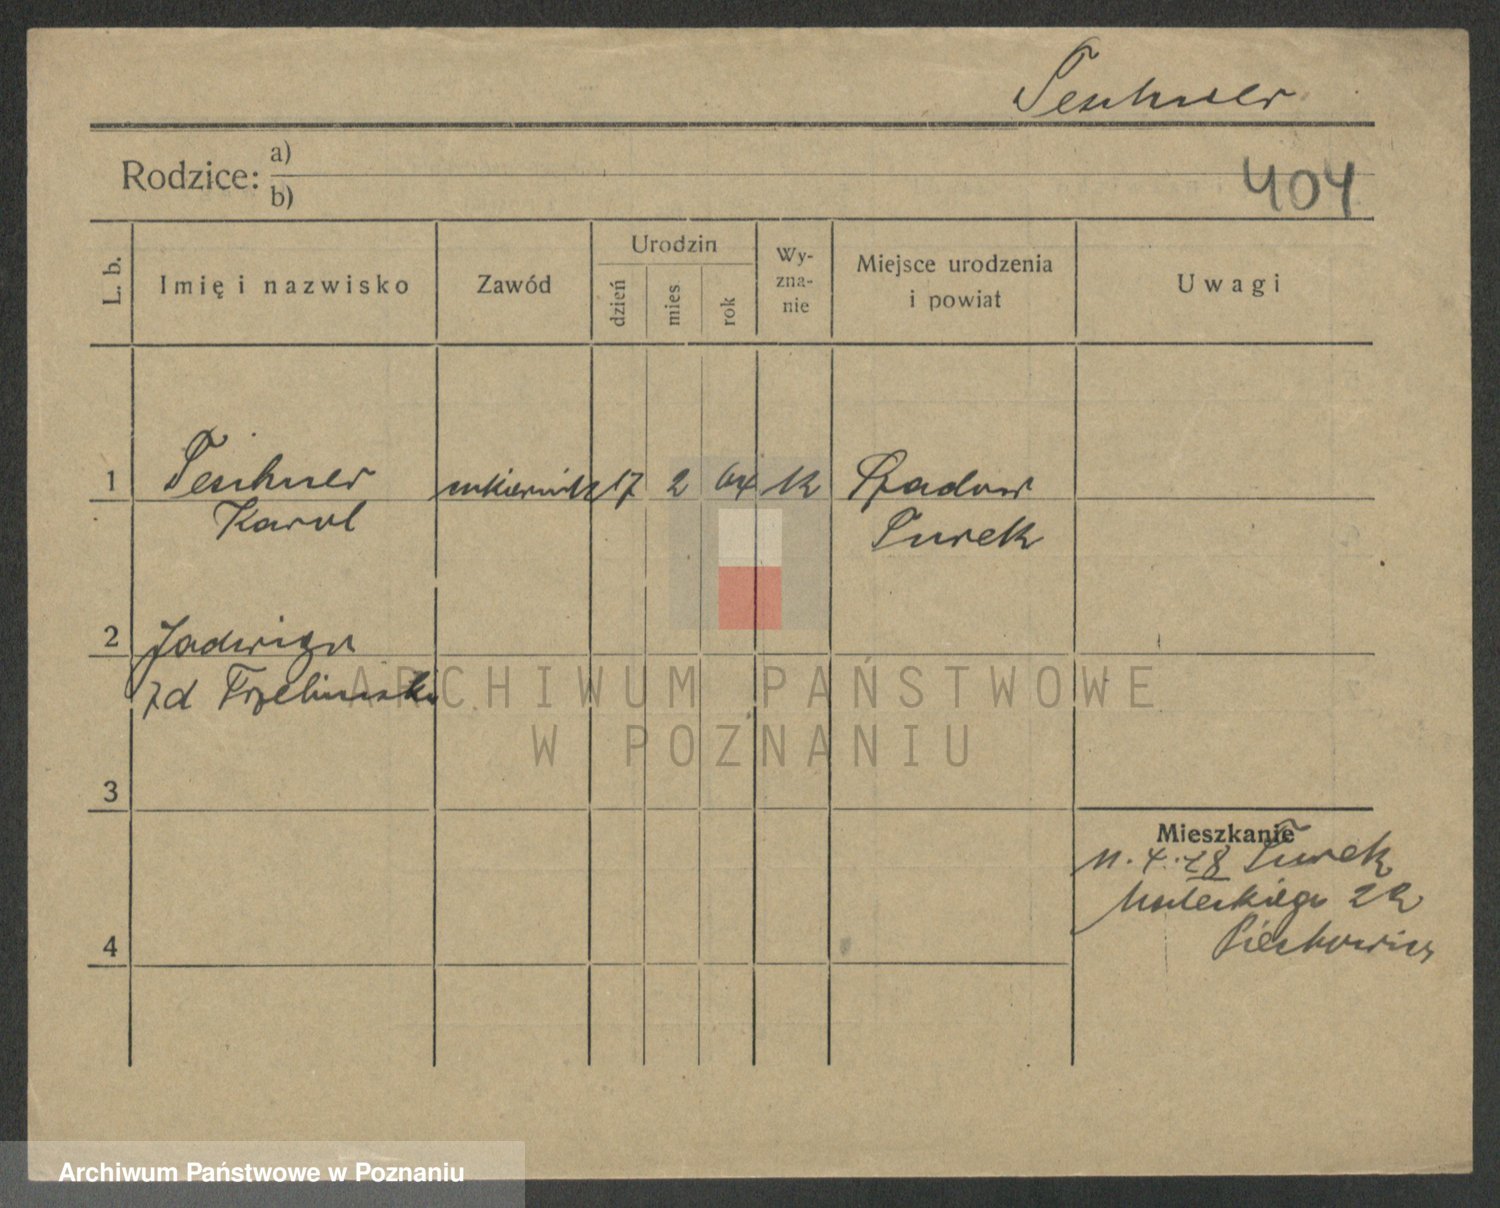 Teschner
Rodzice: a)
b)
404
L. b.
Imię i nazwisko
Zawód
Urodzin
dzień
mies
rok
Wy-
zna-
nie
Miejsce urodzenia
i powiat
Uwagi
1
Teschner
Karol
cukiernik
17
2
64
k
Spadow
Turek
2
Jadwiga
zd
ARCHIWUM PAŃSTWOWE
W POZNANIU
3
Mieszkanie
11.4.28 Turek
22
4
Archiwum Państwowe w Poznaniu